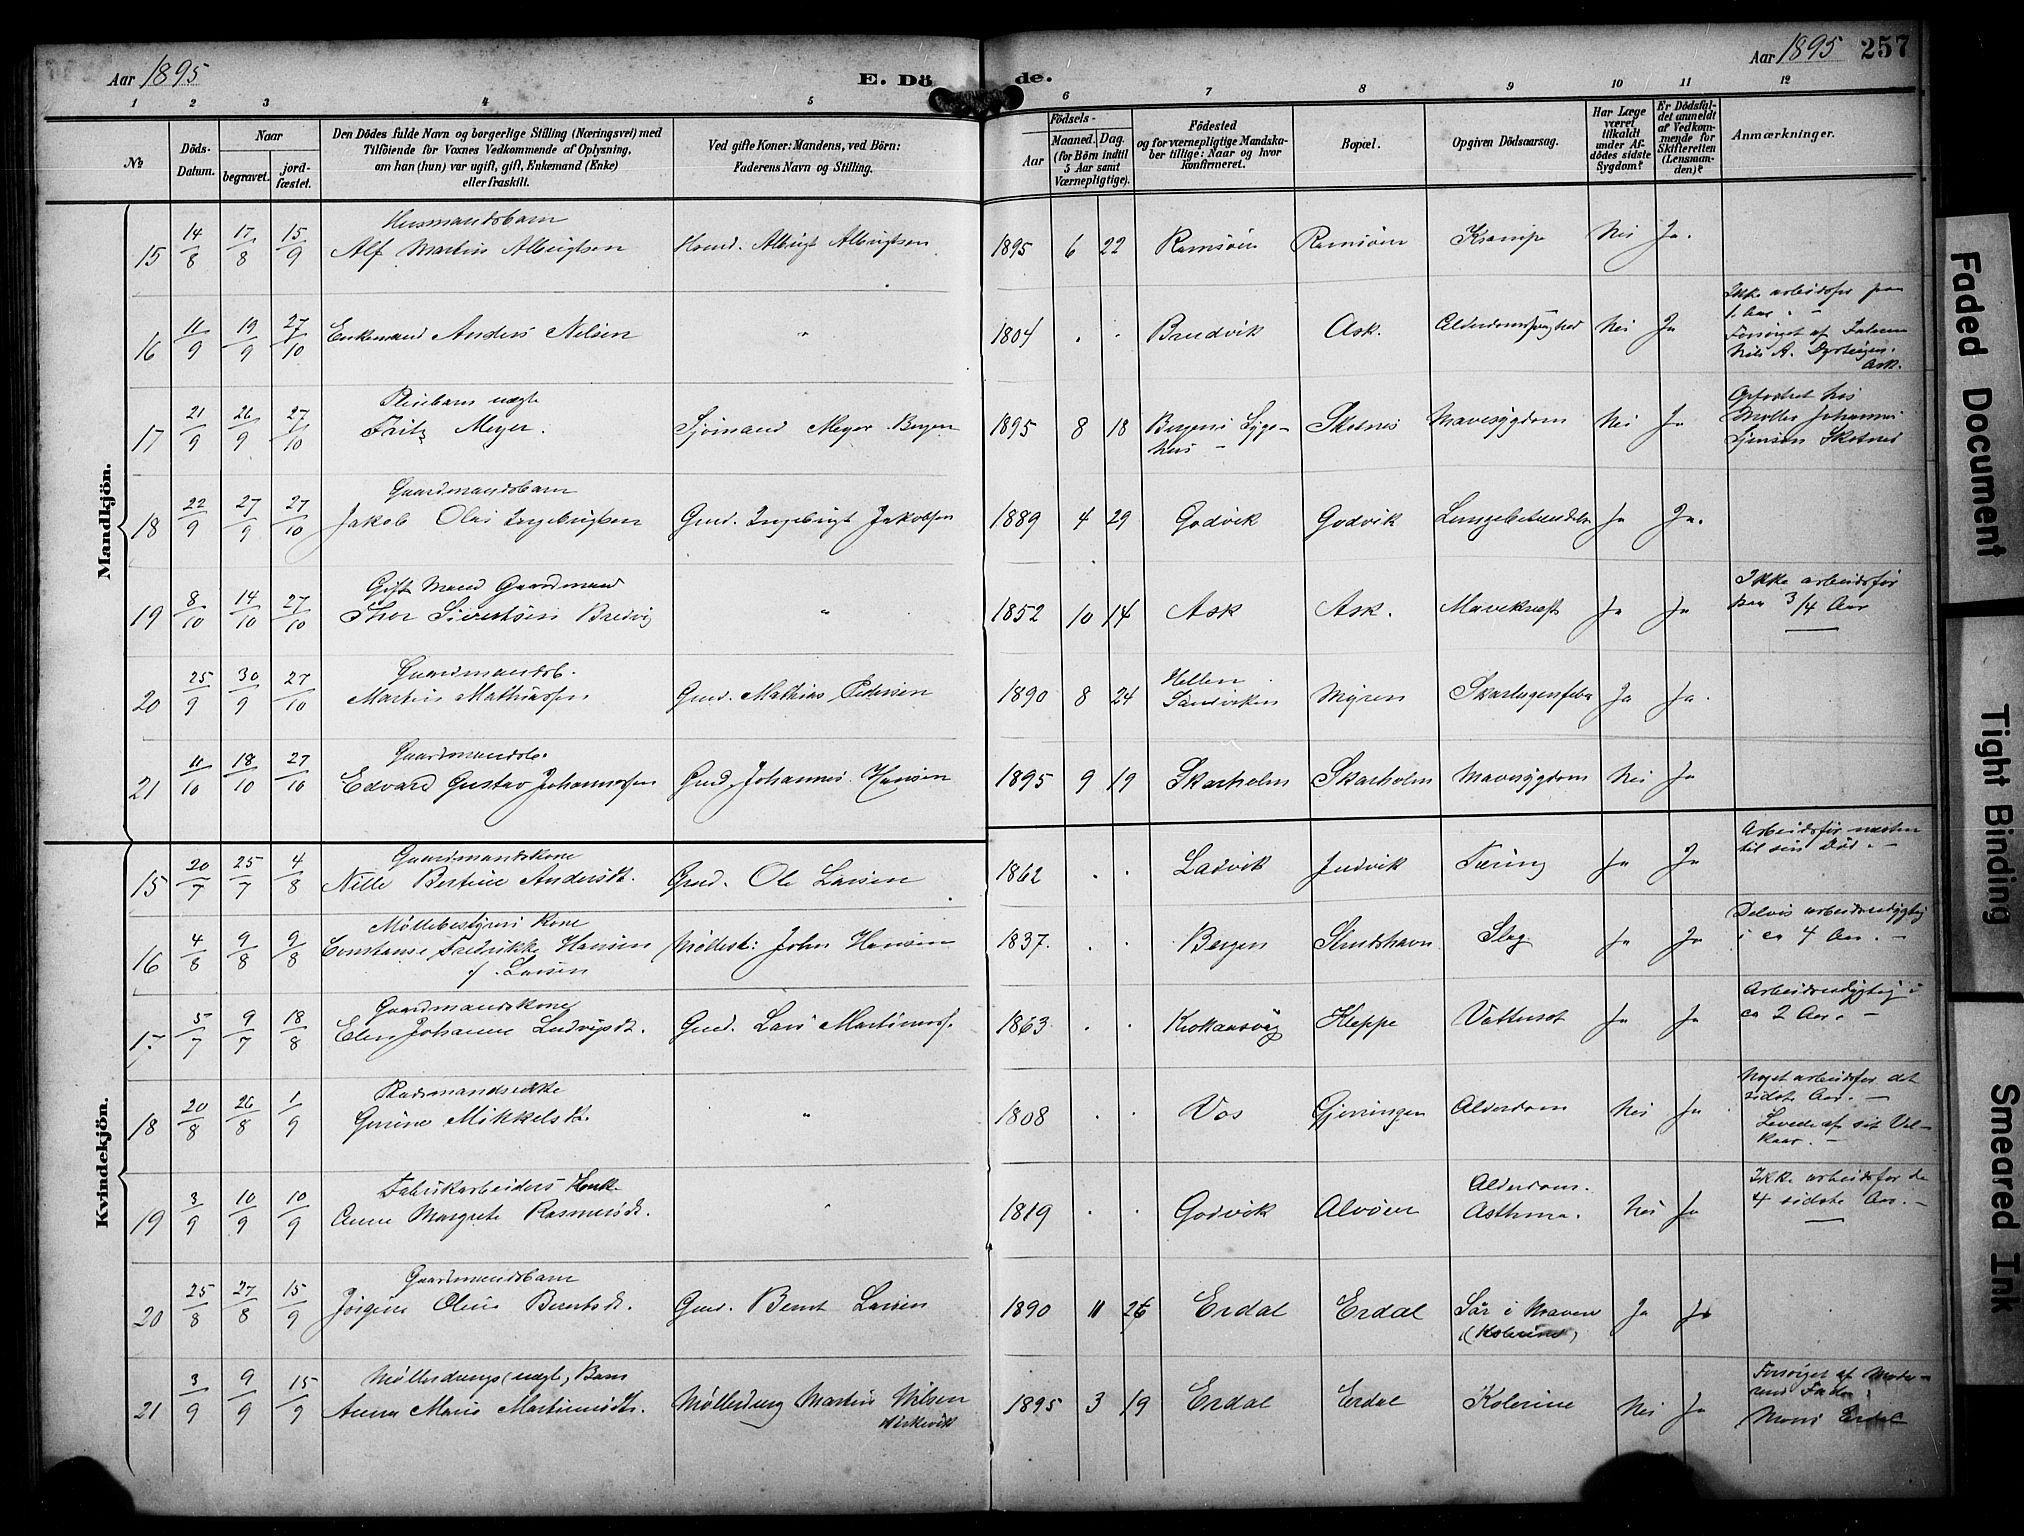 Aar 1895
E. Dö
de.
Aar 1895 257
1 2 3 4 5 6 7 8 9 10 11 12
№
Döds-
Datum.
Naar
begravet.
jord-
fæstet.
Den Dödes fulde Navn og borgerlige Stilling (Næringsvei) med
Tilföiende for Voxnes Vedkommende af Oplysning,
om han (hun) var ugift, gift, Enkemand (Enke)
eller fraskilt.
Ved gifte Koner: Mandens, ved Börn:
Faderens Navn og Stilling.
Födsels-
Aar
Maaned. Dag.
(for Börn indtil
5 Aar samt
Værnepligtige).
Födested
og for værnepligtige Mandska-
ber tillige: Naar og hvor
konfirmeret.
Bopæl.
Opgiven Dödsaarsag.
Har Læge
været
tilkaldt
under Af-
dödes sidste
Sygdom?
Er Dödsfal-
det anmeldt
af Vedkom-
mende for
Skifteretten
(Lensman-
den)?
Anmærkninger.
Mandkjön.
Husmandsbarn
15 14/8 17/8 15/9 Alf Martin Albrigtsen Husmd. Albrigt Albrigtsen 1895 6 22 Ramsöen Ramsöen Krampe Nei Ja.
16 11/9 19/9 27/10 Enkemand Anders Nilsen " 1804 . . Brudvik Ask. Alderdomssvaghed Nei Ja
Ikke arbeidsfør paa
Aar.
Forsørget af
Nils A.
Ask.
Pleiebarn uægte
17 21/9 26/9 27/10 Fritz Meyer. Sjömand Meyer Bergen 1895 8 18 Bergens Syge-
hus - Skotnes Mavesygdom Nei Ja
Opfostret hos
Møller Johannes
Skotnes
Gaardmandsbarn
18 22/9 27/9 27/10 Jakob Olai Ingebrigtsen Gmd. Ingebrigt Jakobsen 1889 4 29 Godvik Godvik Lungebetændelse Ja Ja.
Gift Mand Gaardmand
19 8/10 14/10 27/10 Thor Sivertsen Bredvig " 1852 10 14 Ask Ask. Mavekræft Ja Ja
Ikke arbeidsfør
paa 3/4 Aar
Gaardmandsb.
20 25/9 30/9 27/10 Martin Mathiassen Gmd. Mathias Pedersen 1890 8 24 Hellen
Sandviken Myren Skarlagensfeber Ja Ja.
Gaardmandsb.
21 11/10 18/10 27/10 Edvard Gustav Johannessen Gmd. Johannes Hansen 1895 9 19 Skarholm Skarholm Mavesygdom Nei Ja
Kvindekjön.
Gaardmandskone
15 20/7 25/7 4/8 Nille Bertine Andersdt. Gmd. Ole Larsen 1862 . . Ladvik Juvik Tæring Ja Ja
Arbeidsfør næsten
til sin Død. -
Møllebestyrers Kone
16 4/8 9/8 9/8 Constanse Fredrikke Hansen
f. Larsen
Møllest: John Hansen 1837. . . Bergen Slag Ja Ja
Delvis arbeidsudygtig
i ca 4 Aar. -
Gaardmandskone
17 5/7 9/7 18/8 Elen Johanne Ludvigsdt. Gmd. Lars Martinuss. 1863 . . Kleppe Vattersot Ja Ja
Arbeidsudygtig i
ca 2 Aar. -
18 20/8 26/8 1/9 Gurine Mikkelsdt. " 1808 . . Vos Gjerringen Alderdom Nei Ja
Noget arbeidsfør det
sidste Aar. -
Levede af sit Vel-
kaar. -
Fabrikarbeiders Enke
19 3/9 10/9 10/9 Anne Margrete Rasmusdt. " 1819 . . Godvik Alvöen Alderdom.
Asthma. Nei Ja
Ikke arbeidsfør de
4 sidste Aar. -
Gaardmandsbarn
20 25/8 27/8 15/9 Jörgine Oline Berntsdt. Gmd. Bernt Larsen 1890 11 26 Erdal Erdal Sår i Maven
(Kolerine) Ja Ja
Møllerdrengs (uægte) Barn
21 3/9 9/9 15/9 Anna Marie Martinusdt. Mølledreng Martin Nilsen
1895 3 19 Erdal Erdal Kolerine Nei Ja
Forsørget af Mode-
rens Fader:
Mons Erdal
Faded Document
Tight Binding
Smeared Ink